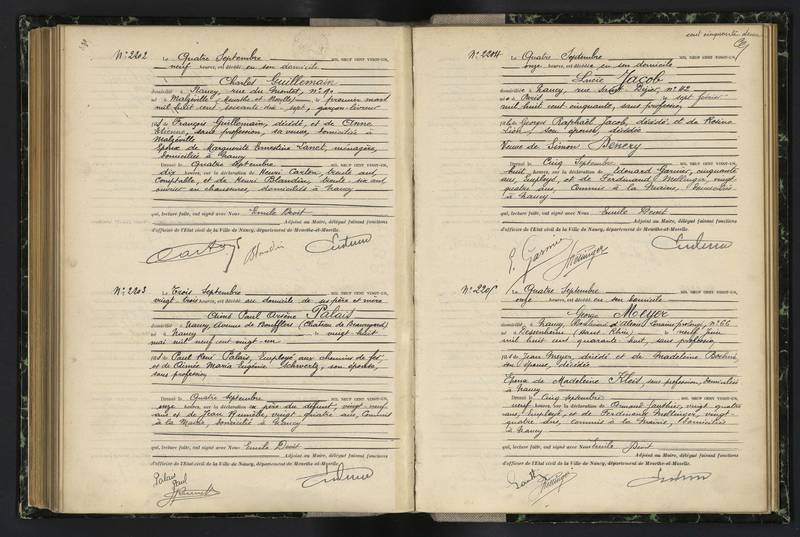 cent cinquante deux
N° 2202
Le Quatre Septembre MIL NEUF CENT VINGT-UN,
neuf heures, est décédé en son domicile
Charles Guillemain
domicilié à Nancy, rue du Montet, n° 90
né à Malzéville (Meurthe et Moselle) le premier mars
mil huit cent soixante dix-sept, garçon livreur
fils de François Guillemain, décédé, et de Anne
Etienne, sans profession, sa veuve, domiciliée à
Malzéville
Epoux de Marguerite Ernestine Lanet, ménagère,
domiciliée à Nancy
Dressé le Quatre Septembre MIL NEUF CENT VINGT-UN,
dix heures, sur la déclaration de Henri Carton, trente ans,
Comptable, et de Henri Blandin, trente-six ans
ouvrier en chaussures, domiciliés à Nancy
qui, lecture faite, ont signé avec Nous Emile Droit
Adjoint au Maire, délégué faisant fonctions
d'officier de l'Etat civil de la Ville de Nancy, département de Meurthe-et-Moselle.
Carton Blandin
N° 2203
Le Trois Septembre MIL NEUF CENT VINGT-UN,
vingt trois heures, est décédé au domicile de ses père et mère
Aimé Paul Arsène Palais
domicilié à Nancy, Avenue de Boufflers (Château de Beauregard)
né à Nancy le vingt-huit
mai mil neuf cent vingt-un
fils de Paul René Palais, Employé aux chemins de fer,
et de Aimée Maria Eugénie Schwertz, son épouse,
sans profession
Dressé le Quatre Septembre MIL NEUF CENT VINGT-UN,
onze heures, sur la déclaration du père du défunt, vingt-neuf
ans et de Jean vingt-quatre ans, Commis
à la Mairie, domicilié à Nancy
qui, lecture faite, ont signé avec Nous Emile Droit
Adjoint au Maire, délégué faisant fonctions
d'officier de l'Etat civil de la Ville de Nancy, département de Meurthe-et-Moselle.
Palais
Paul
N° 2204
Le Quatre Septembre MIL NEUF CENT VINGT-UN,
onze heures, est décédée en son domicile
Lucie Jacob
domiciliée à Nancy, rue Saint Dizier, n° 42
née à Paris le sept février
mil huit cent cinquante, sans profession
fille de Georges Raphaël Jacob, décédé, et de Rosine
Léon, son épouse, décédée
Veuve de Simon Bencry
Dressé le Cinq Septembre MIL NEUF CENT VINGT-UN,
huit heures, sur la déclaration de Edouard Garnier, cinquante
ans, Employé, et de Ferdinand Mellinger, vingt
quatre ans, Commis à la Mairie, domiciliés
à Nancy
qui, lecture faite, ont signé avec Nous Emile Droit
Adjoint au Maire, délégué faisant fonctions
d'officier de l'Etat civil de la Ville de Nancy, département de Meurthe-et-Moselle.
E. Garnier Mellinger
N° 2205
Le Quatre Septembre MIL NEUF CENT VINGT-UN,
onze heures, est décédé en son domicile
George Meyer
domicilié à Nancy, Boulevard d'Alsace Lorraine prolongé, n° 66
né à Dessenheim (Haut Rhin) le neuf Juin
mil huit cent quarante huit, sans profession
fils de Jean Meyer, décédé et de Madeleine
son épouse, décédée
Epoux de Madeleine Kleit, sans profession, domiciliée
à Nancy
Dressé le Cinq Septembre MIL NEUF CENT VINGT-UN,
neuf heures, sur la déclaration de Armand Gauthier, vingt quatre
ans, Employé, et de Ferdinand Mellinger, vingt-
quatre ans, commis à la Mairie, domiciliés
à Nancy
qui, lecture faite, ont signé avec Nous Emile Droit
Adjoint au Maire, délégué faisant fonctions
d'officier de l'Etat civil de la Ville de Nancy, département de Meurthe-et-Moselle.